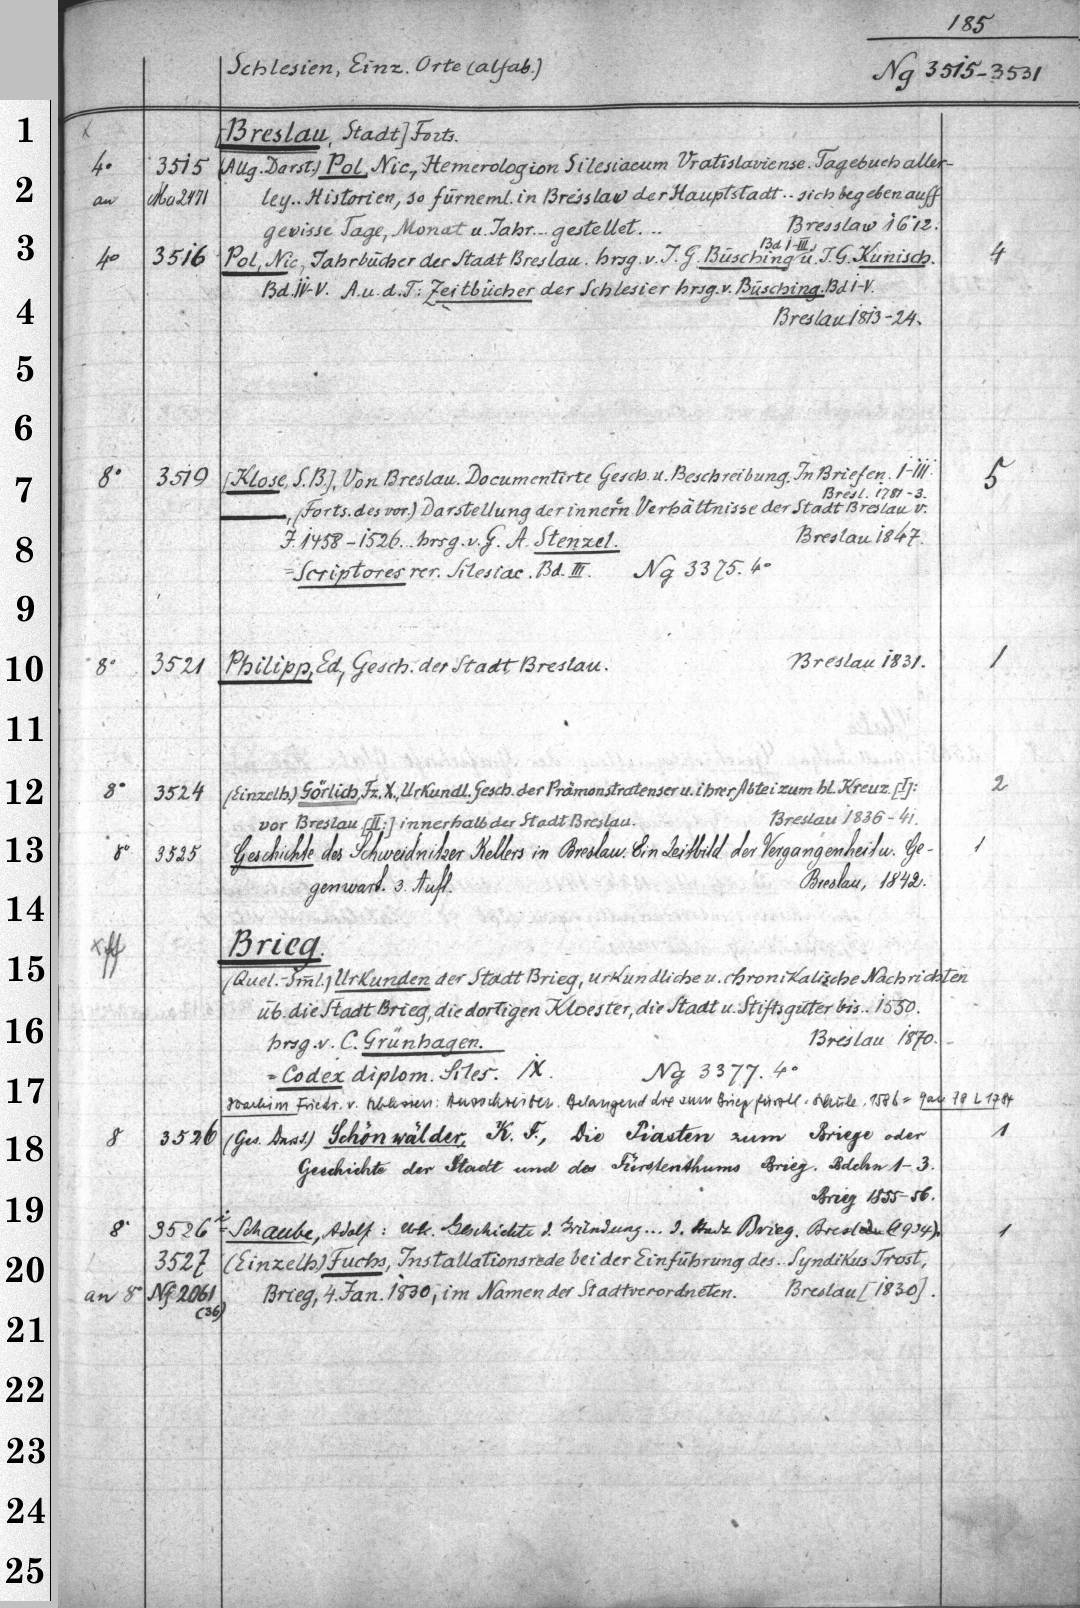 185
Schlesien, Einz. Orte (alfab.) Ng 3515-3531
1
[Breslau, Stadt] Forts.
4° 3515 (Allg. Darst.) Pol, Nic., Hemerologion Silesiacum Vratislaviense. Tagebuch aller-
2
an Ma 2471 ley.. Historien, so fürneml. in Bresslaw der Hauptstadt .. sich begeben auff
gewisse Tage, Monat u. Jahr... gestellet... Bresslaw 1612.
3
Bd I-III,
4° 3516 Pol, Nic, Jahrbücher der Stadt Breslau. hrsg. v. J. G. Büsching u. J. G. Kunisch. 4
Bd. IV-V. A. u. d. T: Zeitbücher der Schlesier hrsg. v. Büsching. Bd I-V.
4
Breslau 1813-24.
5
6
7
8° 3519 [Klose, S. B.], Von Breslau. Documentirte Gesch. u. Beschreibung. In Briefen. I-III. 5
Bresl. 1781-3.
——, (Forts. des vor.) Darstellung der innern Verhältnisse der Stadt Breslau v.
8
J. 1458-1526.. hrsg. v. G. A. Stenzel. Breslau 1847.
= Scriptores rer. Silesiac. Bd. III. Ng 3375. 4°
9
10
8° 3521 Philipp, Ed, Gesch. der Stadt Breslau. Breslau 1831. 1
11
12
8° 3524 (Einzelh.) Görlich, Fz. X., Urkundl. Gesch. der Prämonstratenser u. ihrer Abtei zum hl. Kreuz. [I]: 2
vor Breslau [II:] innerhalb der Stadt Breslau. Breslau 1836-41.
13
8° 3525 Geschichte des Schweidnitzer Kellers in Breslau. Ein Zeitbild der Vergangenheit u. Ge- 1
genwart. 3. Aufl. Breslau, 1842.
14
Brieg.
15
(Quel.-Sml.) Urkunden der Stadt Brieg, urkundliche u. chronikalische Nachrichten
üb. die Stadt Brieg, die dortigen Kloester, die Stadt u. Stiftsgüter bis.. 1550.
16
hrsg. v. C. Grünhagen. Breslau 1870.
= Codex diplom. Siles. IX. Ng 3377. 4°
17
Joachim Friedr. v. Schlesien: Ausschreiben. Belangend die zum Brieg 1586 =
18
8 3526 (Ges. Darst.) Schönwälder, K. F., Die Piasten zum Briege oder 1
Geschichte der Stadt und des Fürstenthums Brieg. Bdchn 1-3.
19
Brieg 1855-56.
8° 3526 Schaube, Adolf: Geschichte d. Gründung... d. Stadt Brieg. Breslau (1934). 1
20
3527 (Einzelh) Fuchs, Installationsrede bei der Einführung des.. Syndikus Trost,
an 8° Nf 2061 Brieg, 4. Jan. 1830, im Namen der Stadtverordneten. Breslau [1830].
(36)
21
22
23
24
25